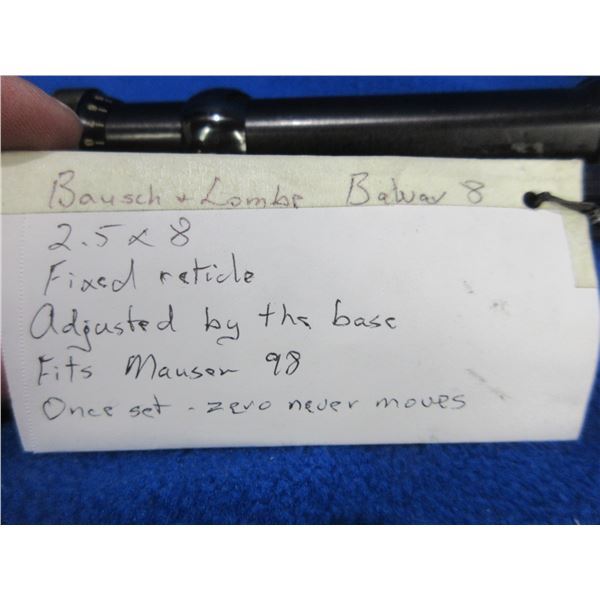 Bausch + Lombe Balvar 8
2.5 x 8
Fixed reticle
Adjusted by the base
Fits Mauser 98
Once set - zero never moves